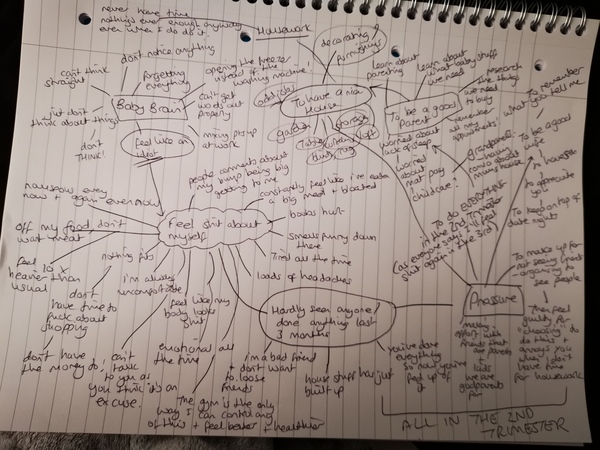 never have time
nothing's ever enough anyway
even when I do do it.
Housework
decorating /
furnishing
learn about
parenting
learn about
what baby stuff
we need
research
the things
we need
to buy
remember
all my
appointments!
To remember
what you tell
me
don't notice anything
can't think
straight
forgetting
everything
opening the freezer
instead of the
washing machine!
Baby Brain
can't get
words out
properly
just don't
think about things
don't
THINK!
feel like an
idiot
mixing things up
at work
To have a nice
House
garden
storage
To be a good
Parent
worried about
lack of sleep
worried
about
mat pay
childcare!
To be a good
wife
to appreciate
you
To keep on top of
date nights
To do EVERYTHING
in the 2nd Trimester
(as everyone says I'll feel
shit again in the 3rd)
people comments about
my bump being big
getting to me
nauseous every
now + again even now
constantly feel like i've eaten
a big meal + bloated
Feel shit about
myself
boobs hurt
Smells funny down
there
Tired all the time
loads of headaches
Off my food don't
want meat
feel 10 x
heavier than
usual
nothing fits
don't
have time to
fuck about
shopping
i'm always
uncomfortable
feel like my
body looks
shit
emotional all
the time
don't have
the money to
can't
talk
to you as
you think it's an
excuse.
The gym is the only
way I can control any
of this + feel better + healthier
I'm a bad friend
+ don't want
to loose
friends
Hardly seen anyone /
done anything last
3 months
house stuff has just
built up
you've done
everything
so now you're
fed up of
it
Pressure
making
effort with
friends that
are parents
+
kids
we are
godparents
for
To make up for
not seeing friends
- organising to
see people
Then feel
guilty for
choosing to
do this +
annoys you
when I don't
have time
for housework
ALL IN THE 2ND
TRIMESTER